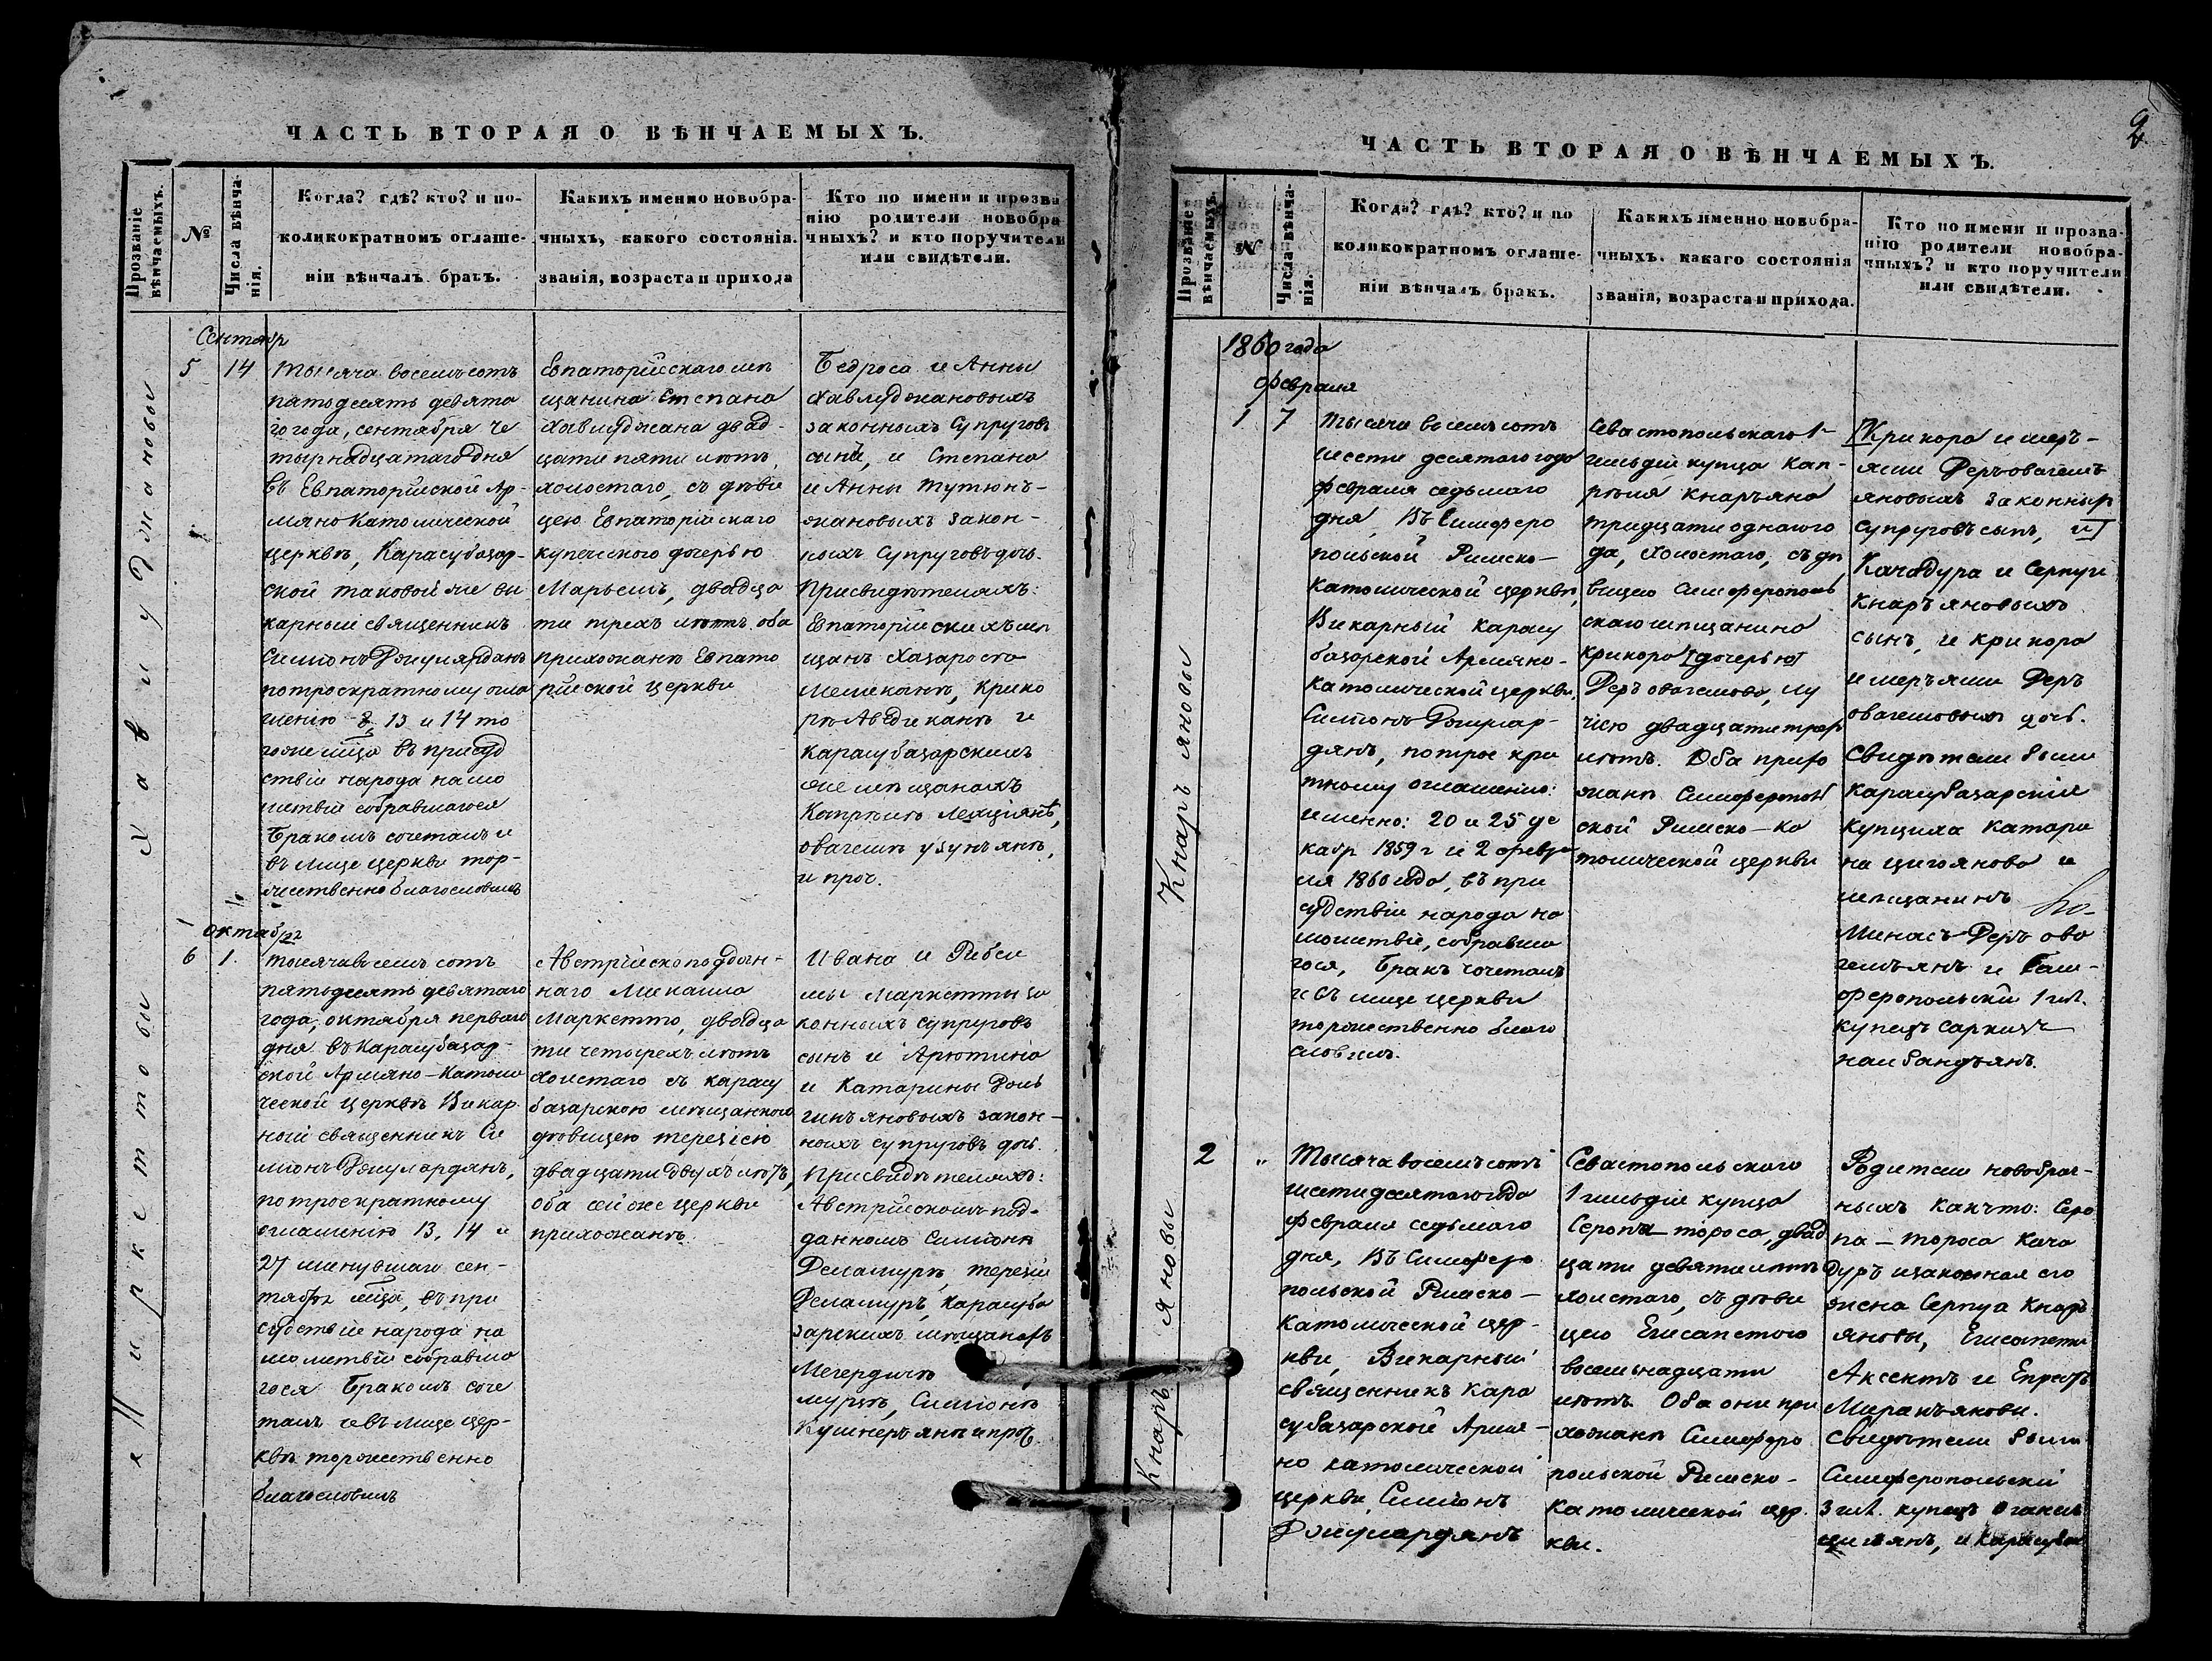 ЧАСТЬ ВТОРАЯ О ВѢНЧАЕМЫХЪ.
Прозваніе вѣнчаемыхъ.
№
Числа вѣнча-
нія.
Когда? гдѣ? кто? и по-
коликократномъ оглаше-
ніи вѣнчалъ бракъ.
Какихъ именно новобра-
чныхъ, какого состоянія.
званія, возраста и прихода
Кто по имени и прозва
нію родители новобра
чныхъ? и кто поручители
или свидѣтели.
Хавлуджановы
Сентябр
5
14
Тысяча восемьсотъ
пятьдесятъ девята
го года, сентября че
тырнадцатаго дня
въ Евпаторійской Ар-
мяно Католической
церквѣ, Карасубазар-
ской таковой же ви
карный священникъ
Симонъ
по троекратному огла
шенію 8, 13 и 14 то
гоже мца въ присуд
ствіи народа на мо
литвѣ собравшагося
Бракомъ сочеталъ и
въ лице церкви тор-
жественно благословилъ
Евпаторійскаго мѣ
щанина Степана
Хавлуджана двад-
цати пяти лѣтъ,
холостаго, съ дѣви
цею Евпаторійскаго
купеческого дочерью
Марьемъ, двадца
ти трехъ лѣтъ. оба
прихожанѣ Евпато
рійской церкви
Бедроса и Анны
Хавлуджановыхъ
законныхъ Супруговъ
сынъ, и Степана
и Анны Тутюнъ-
жановыхъ закон-
ныхъ Супруговъ дочь.
При свидѣтеляхъ:
Евпаторійскихъ мѣ
щанъ Хазароса
Меликянѣ, Крико
рѣ Аведиканѣ и
карасубазарскихъ
же мѣщанахъ
Капрѣлѣ
овагемѣ узунъянѣ,
и проч.
Маркетовы
октабря
6
1.
Тысяча восемь сотъ
пятьдесятъ девятаго
года, октября перваго
дня въ Карасубазар-
ской Армяно-Католи
ческой Церквѣ Викар
ной священникъ Си
монъ Джулардянъ,
по троекратному
оглашенію 13, 14 и
27 минувшаго сен-
тября мца, въ при
судствіе народа на
молитвѣ собравша
гося Бракомъ соче
талъ и въ лице цер-
квѣ торжественно
благословилъ
Австрійско поддан-
наго Микаила
Маркетто, двадца
ти четырехъ лѣтъ
холостаго съ карасу
базарскою мѣщанскою
дѣвицею терезіею
двадцати двухъ лѣтъ,
оба сей же церкви
прихожанѣ.
Ивана и Рибси
мы Маркетты за
конныхъ супруговъ
сынъ и Арютина
и Катарины
гинъяновыхъ закон-
ныхъ супруговъ дочь.
При свидѣтеляхъ:
Австрійскомъ под-
данномъ Симонѣ
Деламурѣ, терезіи
Деламуръ, карасуба
зарскихъ мѣщанахъ
Мегердичѣ
мурзѣ, Симонѣ
Кушнеръянѣ и проч.
2
ЧАСТЬ ВТОРАЯ О ВѢНЧАЕМЫХЪ.
Прозваніе вѣнчаемыхъ.
№
Числа вѣнча-
нія.
Когда? гдѣ? кто? и по
коликократномъ оглаше-
ніи вѣнчалъ бракъ.
Какихъ именно новобра-
чныхъ. какаго состоянія
званія, возраста и прихода.
Кто по имени и прозва-
нію родители новобра-
чныхъ? и кто поручители
или свидѣтели.
Кнаръ яновы
1860 года
Февраля
1
7
Тысяча восемьсотъ
шестидесятаго года
февраля седьмаго
дня, Въ Симферо
польской Римско-
католической церквѣ,
Викарный карасу
базарской Армяно-
католической церкви,
Симонъ Джулар-
дянъ, по трое кра
тному оглашенію:
именно: 20 и 25 де
кабр 1859 г и 2 февра
ля 1860 года, въ при
судствіе народа на
молитвѣ, собравша
гося, Бракъ сочеталъ
и въ лице церкви
торжественно благо
словилъ.
Севастопольскаго 1-
гильдіи купца Кап-
рѣля Кнаръяна
тридцати одного го
да, холостаго, съ дѣ
вицею Симферополь
скаго мѣщанина
Крикора [дочерью]
Деръ овагемова,
двадцати трехъ
лѣтъ. Оба прихо
жанѣ Симферополь
ской Римско-Ка
толической церкви
[Крикора и меръ-
ями Деръовагемъ
яновыхъ законныхъ
супруговъ сынъ, и]
Качадура и Серпуи
Кнаръяновыхъ
сынъ, и крикора
и меръями Деръ
овагемовыхъ дочь.
Свидѣтели были
Карасубазарскіе
купчиха Катари
на цигоянова и
мѣщанинъ
Минасъ Деръ ова
гемъянъ и Сим-
ферополькій 1 гил.
купецъ Саркизъ
налбандъянъ.
Кнаръ яновы
2
"
Тысяча восемьсотъ
шестидесятаго года
февраля седьмаго
дня, Въ Симферо
польской Римско-
католической цер-
кви, Викарный
священникъ Кара
субазарской Армя-
но католической
церкви Симонъ
Джулардянъ
Севастопольскаго
1 гильдіи купца
Серопа-тороса, двад
цати девяти лѣтъ
холостаго, съ дѣви
цею Елисапетою
восемьнадцати
лѣтъ. Оба они при
хожанѣ Симферо
польской Римско-
Католической цер
кви.
Родители новобрач-
ныхъ какъ то: Серо
па-тороса Кача
дуръ и законная его
жена Серпуа Кнаръ
яновы, Елисапеты
Аксентъ и
Миранъяновы.
Свидѣтели были
Симферопольскій
3 гил. купецъ Оганесъ
цигоянъ, и Карасуба